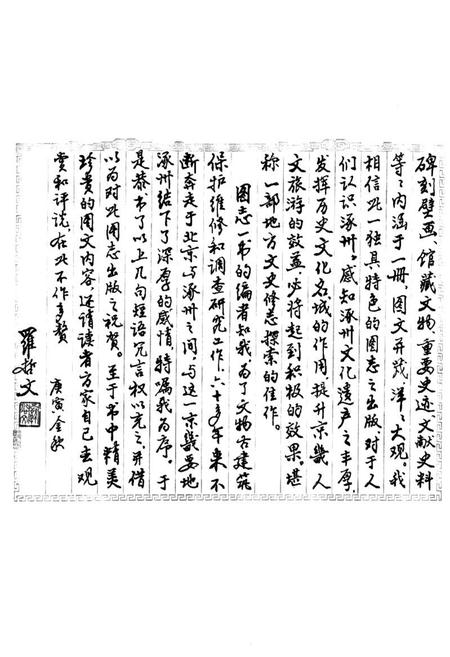 碑刻壁画、馆藏文物、重要史迹、文献史料
等等内涵于一册，图文并茂，洋洋大观。我
相信此一独具特色的图志之出版，对于人
们认识涿州。感知涿州文化遗产之丰厚，
发挥历史文化名城的作用，提升京畿人
文旅游的效益，必将起到积极的效果。堪
称一部地方文史修志探索的佳作。
图志一书的编者知我，为了文物古建筑
保护维修和调查研究工作，六十多年来不
断奔走于北京与涿州之间，与这一京畿要地
涿州结下了深厚的感情，特嘱我为序。于
是恭书了以上几句短语冗言权以充之，并借
以为对此图志出版之祝贺。至于书中精美
珍贵的图文内容，还请读者方家自己去观
赏和评说，在此不作多赘
罗哲文
庚寅金秋